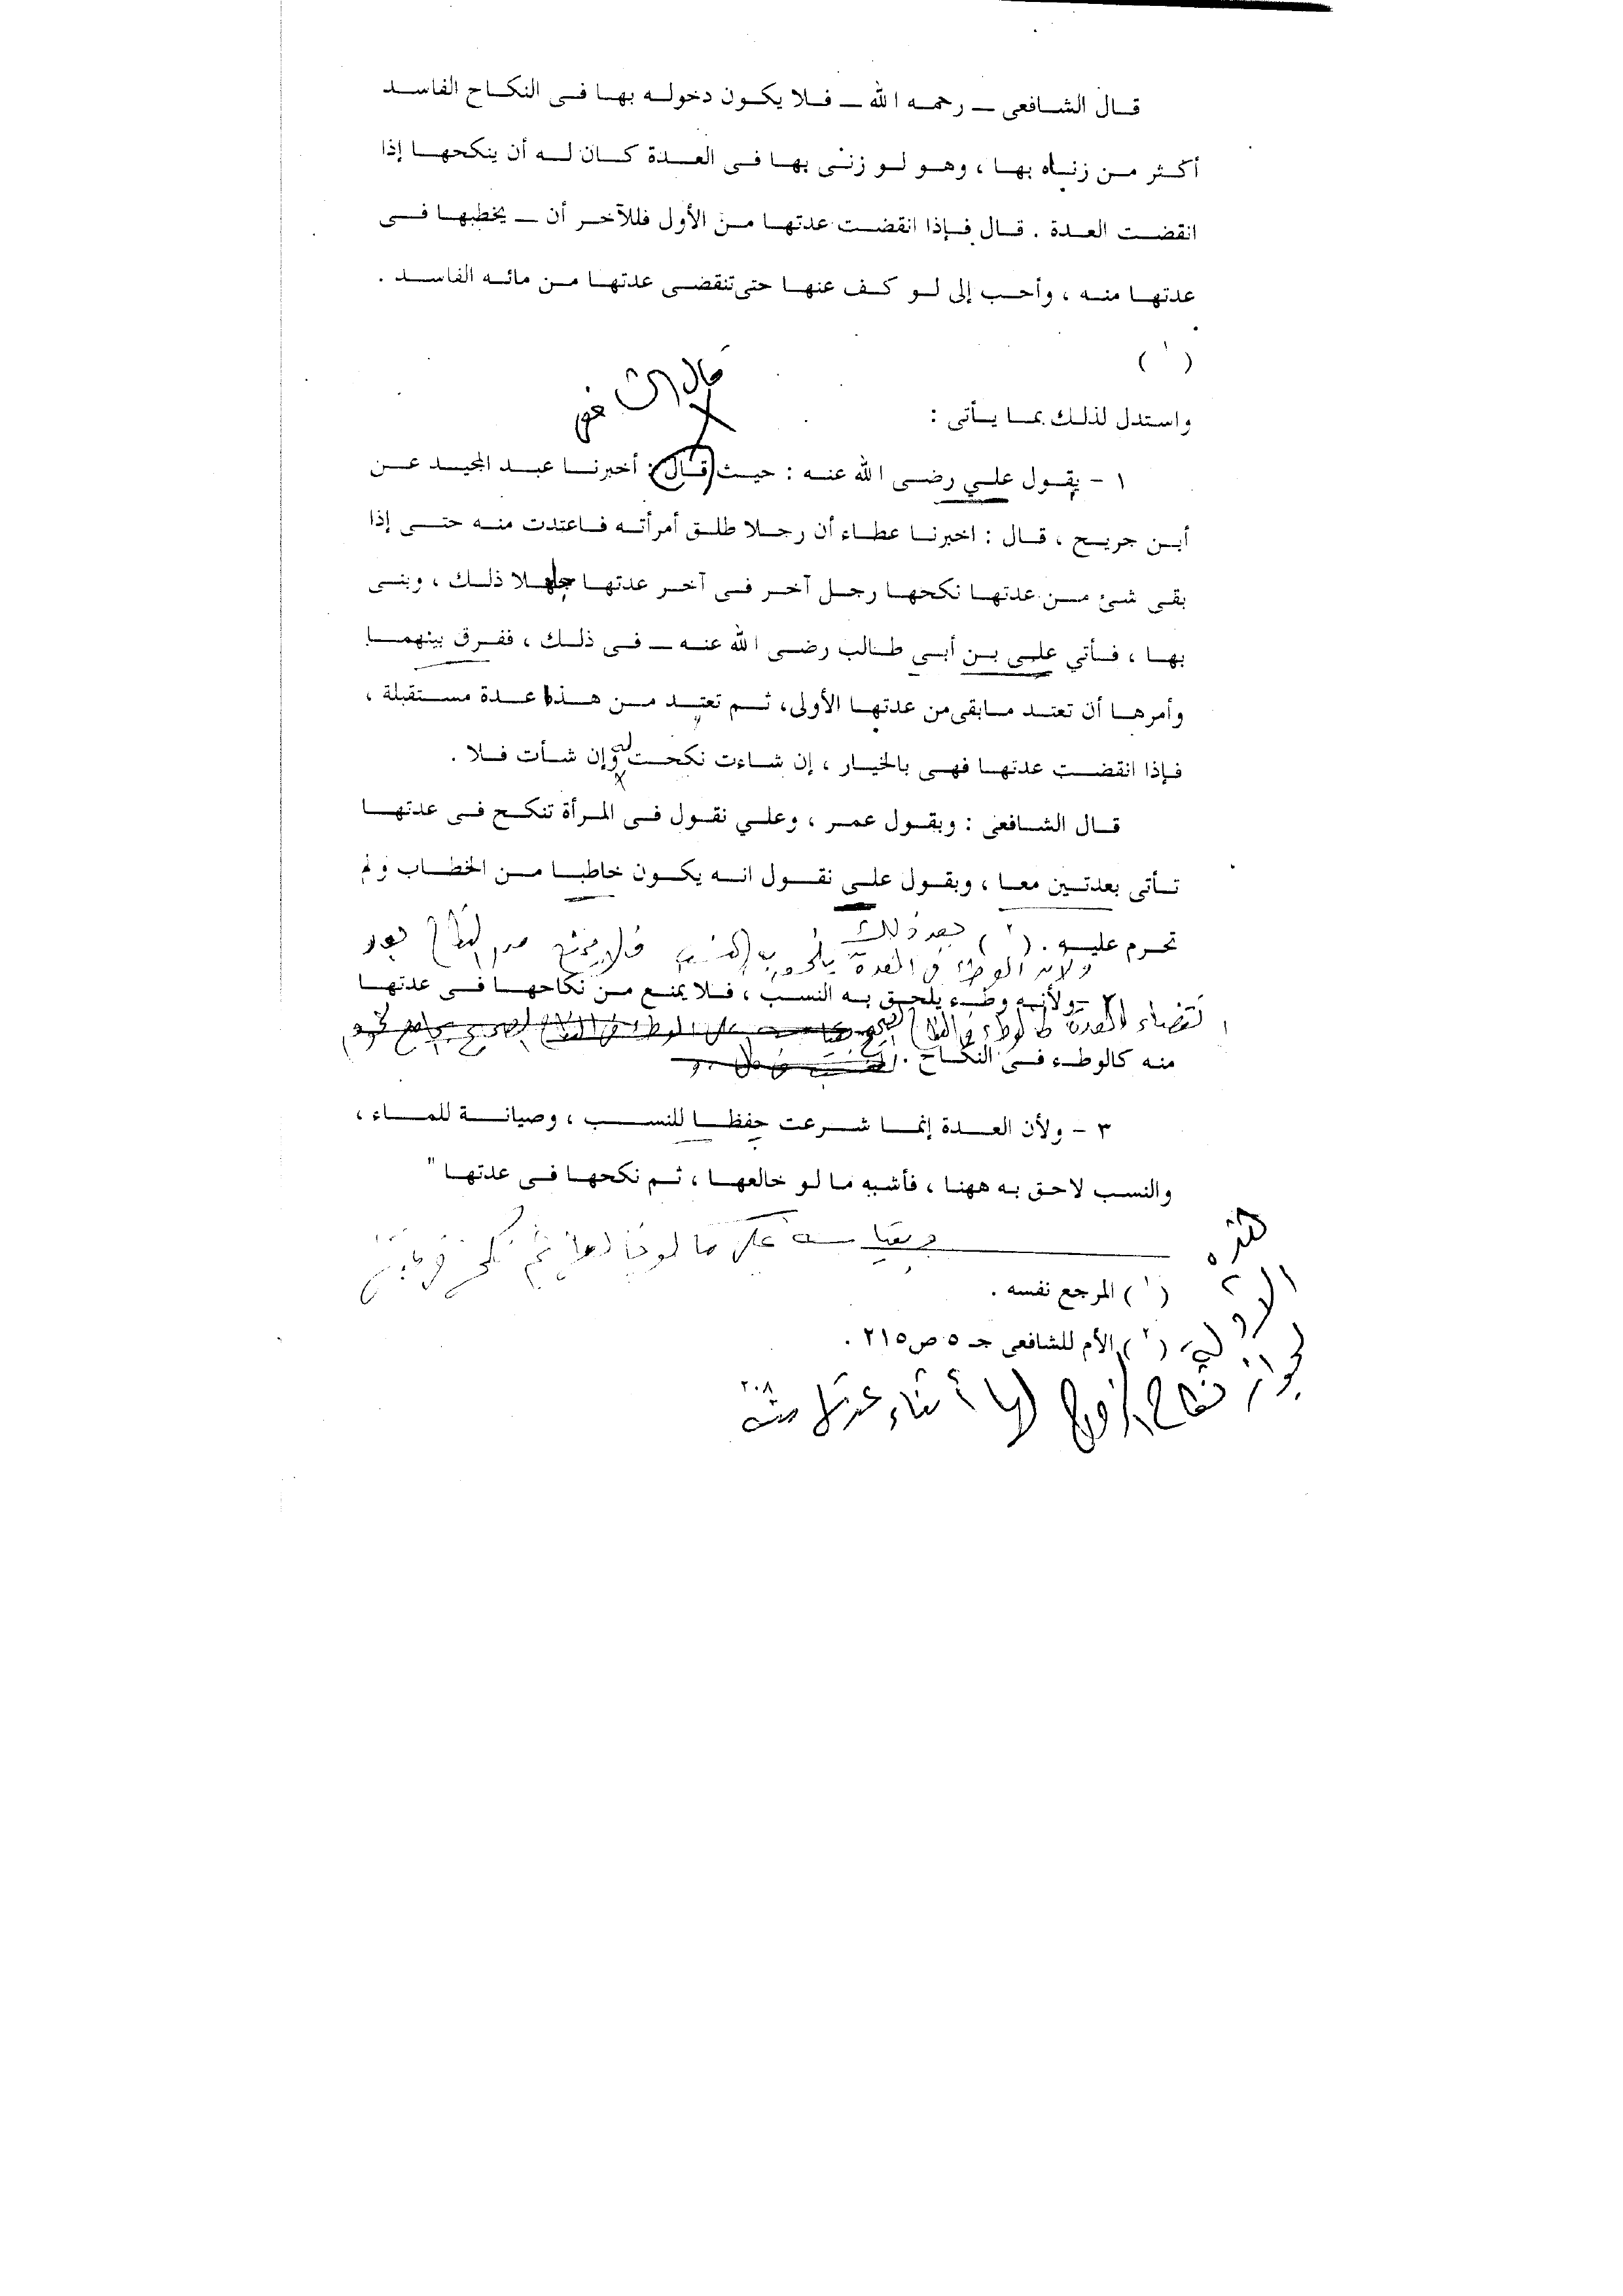 قال الشافعى ـ رحمه الله ـ فلا يكون دخوله بها فى النكاح الفاسد
أكثر من زناه بها ، وهو لو زنى بها فى العدة كان له أن ينكحها إذا
انقضت العدة . قال فإذا انقضت عدتها من الأول فللآخر أن ـ يخطبها فى
عدتها منه ، وأحب إلى لو كف عنها حتى تنقضى عدتها من مائه الفاسد .
( ١ )
قال الشافعى
واستدل لذلك بما يأتى :
١ - يقول علي رضى الله عنه : حيث قال : أخبرنا عبد المجيد عن
أبن جريح ، قال : اخبرنا عطاء أن رجلا طلق أمرأته فاعتدت منه حتى إذا
بقى شئ من عدتها نكحها رجل آخر فى آخر عدتها جاهلا ذلك ، وبنى
بها ، فأتي على بن أبي طالب رضى الله عنه ـ فى ذلك ، ففرق بينهما
وأمرها أن تعتد مابقى من عدتها الأولى، ثم تعتد من هذا عدة مستقبلة ،
فإذا انقضت عدتها فهى بالخيار ، إن شاءت نكحت وإن شأت فلا .
قال الشافعى : وبقول عمر ، وعلي نقول فى المرأة تنكح فى عدتها
تأتى بعدتين معا ، وبقول على نقول انه يكون خاطبا من الخطاب ولم
تحرم عليه . ( ٢ ) بعد ذلك
ولان الوطء فى العدة النسب فلا يمنع من النكاح بعد
٢ - ولأنه وطء يلحق به النسب ، فلا يمنع من نكاحها فى عدتها
انقضاء العدة كالوطء فى النكاح الصحيح
منه كالوطء فى النكاح .
٣ - ولأن العدة إنما شرعت حفظا للنسب ، وصيانة للماء ،
والنسب لاحق به ههنا ، فأشبه ما لو خالعها ، ثم نكحها فى عدتها "
وبقياسه على ما لو خالعها ثم نكح فى
( ١ ) المرجع نفسه .
( ٢ ) الأم للشافعى جـ ٥ ص ٢١٥ .
هذه
الأدلة
لجواز نكاح الزوج لها أثناء عدتها منه
٢٠٨